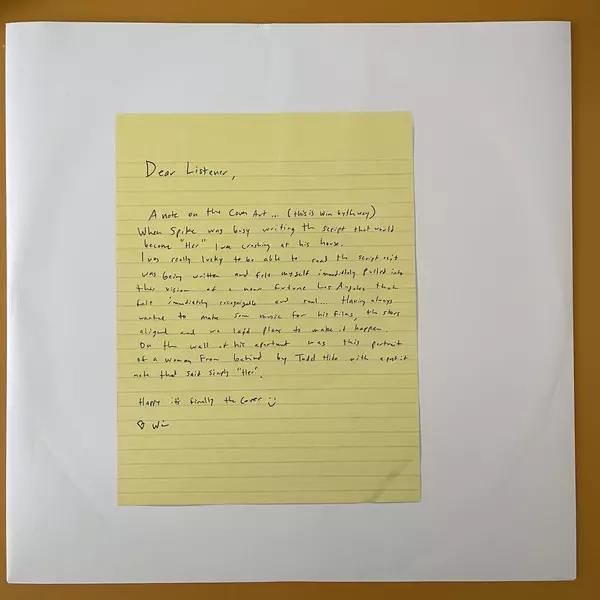 Dear Listener,
A note on the Cover Art... (this is Win by the way)
When Spike was busy writing the script that would
become "Her" I was crashing at his house.
I was really lucky to be able to read the script as it
was being written and felt myself immediately pulled into
this vision of a near future Los Angeles that
felt immediately recognizable and real... Having always
wanted to make some music for his films, the stars
aligned and we laid plans to make it happen.
On the wall of his apartment was this portrait
of a woman from behind by Todd Hido with a post it
note that said simply "Her".
Happy it's finally the cover :)
Win